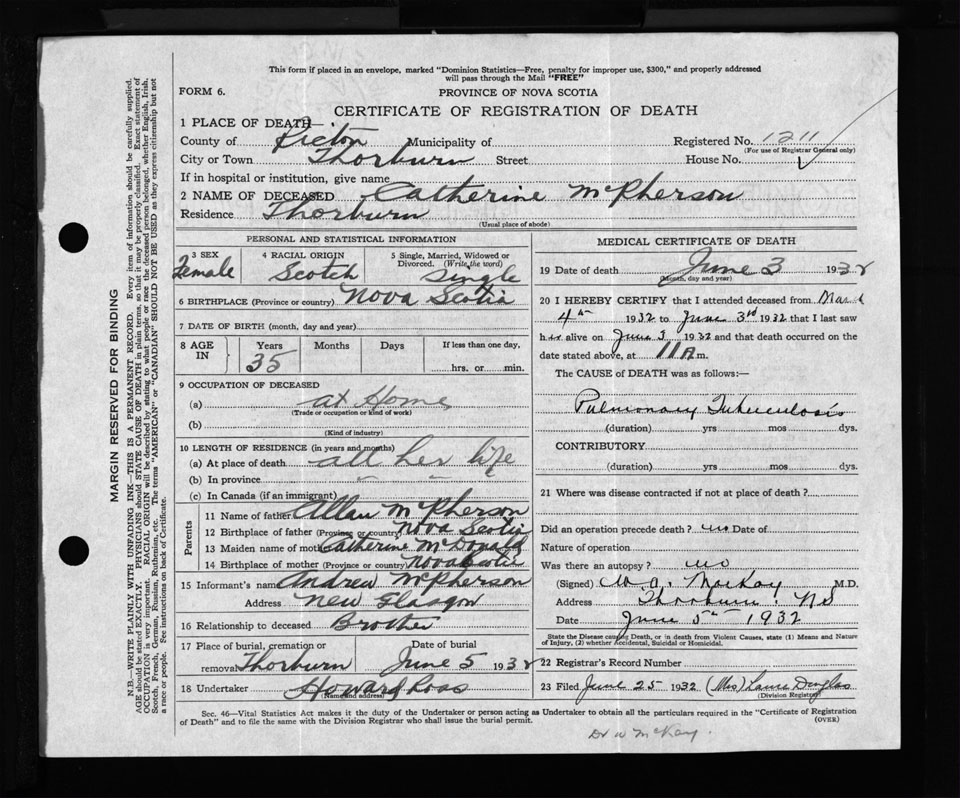 This form if placed in an envelope, marked "Dominion Statistics—Free, penalty for improper use, $300," and properly addressed
will pass through the Mail "FREE"
FORM 6.
PROVINCE OF NOVA SCOTIA
CERTIFICATE OF REGISTRATION OF DEATH
1 PLACE OF DEATH—
County of Pictou Municipality of Registered No. 1211
(For use of Registrar General only)
City or Town Thorburn Street House No.
If in hospital or institution, give name
2 NAME OF DECEASED Catherine McPherson
Residence Thorburn
(Usual place of abode)
PERSONAL AND STATISTICAL INFORMATION
3 SEX 4 RACIAL ORIGIN 5 Single, Married, Widowed or
Divorced. (Write the word)
Female Scotch Single
6 BIRTHPLACE (Province or country) Nova Scotia
7 DATE OF BIRTH (month, day and year)
8 AGE IN Years Months Days If less than one day.
35 hrs. or min.
9 OCCUPATION OF DECEASED
(a) at Home
(Trade or occupation or kind of work)
(b)
(Kind of industry)
10 LENGTH OF RESIDENCE (in years and months)
(a) At place of death all her life
(b) In province " "
(c) In Canada (if an immigrant)
Parents
11 Name of father Allan McPherson
12 Birthplace of father (Province or country) Nova Scotia
13 Maiden name of mother Catherine McDonald
14 Birthplace of mother (Province or country) Nova Scotia
15 Informant's name Andrew McPherson
Address New Glasgow
16 Relationship to deceased Brother
17 Place of burial, cremation or Date of burial
removal Thorburn June 5 1932
18 Undertaker Howard Ross
(Name and address)
MEDICAL CERTIFICATE OF DEATH
19 Date of death June 3 1932
(Month, day and year)
20 I HEREBY CERTIFY that I attended deceased from March
4th 1932 to June 3rd 1932 that I last saw
her alive on June 3 1932 and that death occurred on the
date stated above, at 11 A m.
The CAUSE of DEATH was as follows:—
Pulmonary Tuberculosis
(duration) yrs mos dys.
CONTRIBUTORY
(duration) yrs mos dys.
21 Where was disease contracted if not at place of death?
Did an operation precede death? no Date of
Nature of operation
Was there an autopsy? no
(Signed) W. A. MacKay M.D.
Address Thorburn, NS
Date June 5th 1932
State the Disease causing Death, or in death from Violent Causes, state (1) Means and Nature
of Injury, (2) whether Accidental, Suicidal or Homicidal.
22 Registrar's Record Number
23 Filed June 25 1932 (Mrs) Laura Douglas
(Division Registrar)
Sec. 46—Vital Statistics Act makes it the duty of the Undertaker or person acting as Undertaker to obtain all the particulars required in the "Certificate of Registration
of Death" and to file the same with the Division Registrar who shall issue the burial permit.
(OVER)
Dr W McKay.
MARGIN RESERVED FOR BINDING
N.B.—WRITE PLAINLY WITH UNFADING INK—THIS IS A PERMANENT RECORD. Every item of information should be carefully supplied.
AGE should be stated EXACTLY. PHYSICIANS should STATE CAUSE OF DEATH in plain terms, so that it may be properly classified. Exact statement of
OCCUPATION is very important. RACIAL ORIGIN will be described by stating to what people or race the deceased person belonged, whether English, Irish,
Scotch, French, German, Russian, Ruthenian, etc. The terms "AMERICAN" or "CANADIAN" SHOULD NOT BE USED as they express citizenship but not
a race or people. See instructions on back of Certificate.